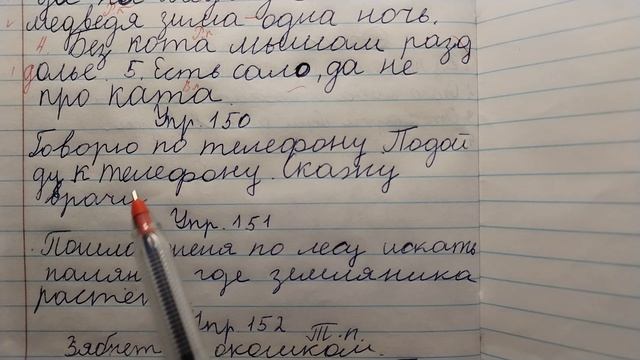 медведя зима одна ночь.
4. Без кота мышам разд
долье. 5. Есть сало, да не
про ката.
Упр. 150
Говорю по телефону Подой
ду к телефону. Скажу
врачу
Упр. 151
Пошла меня по лесу искать
полян где земляника
растёт
Упр. 152
Т.п.
Зябнет окошком.